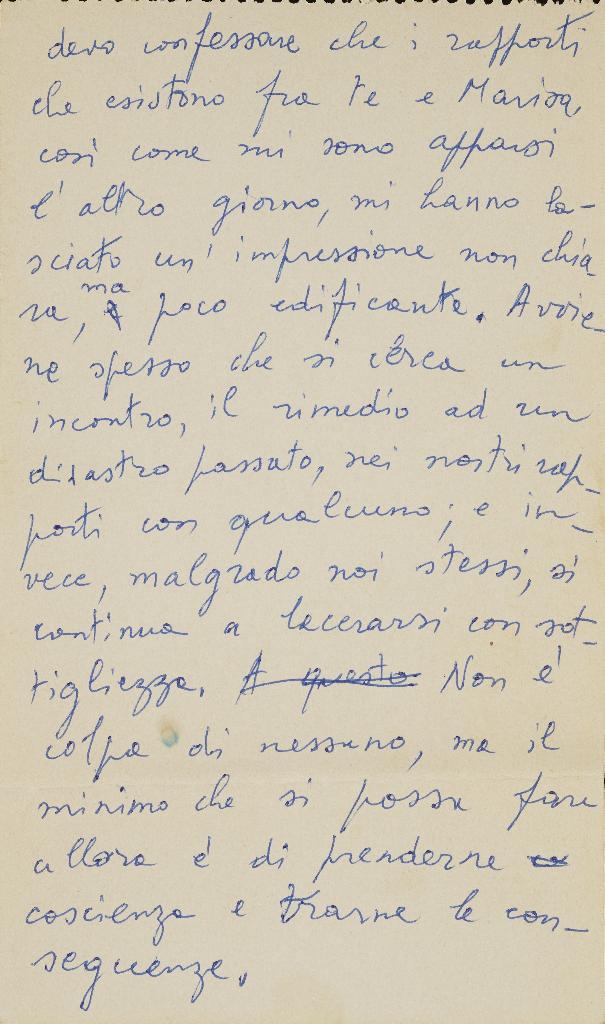 devo confessare che i rapporti
che esistono fra te e Marisa,
così come mi sono apparsi
l'altro giorno, mi hanno la-
sciato un'impressione non chia
ra, ma poco edificante. Avvie-
ne spesso che si cerca un
incontro, il rimedio ad un
disastro passato, nei nostri rap-
porti con qualcuno; e in-
vece, malgrado noi stessi, si
continua a lacerarsi con sot-
tigliezza. A questo Non è
colpa di nessuno, ma il
minimo che si possa fare
allora è di prenderne
coscienza e trarne le con-
seguenze.